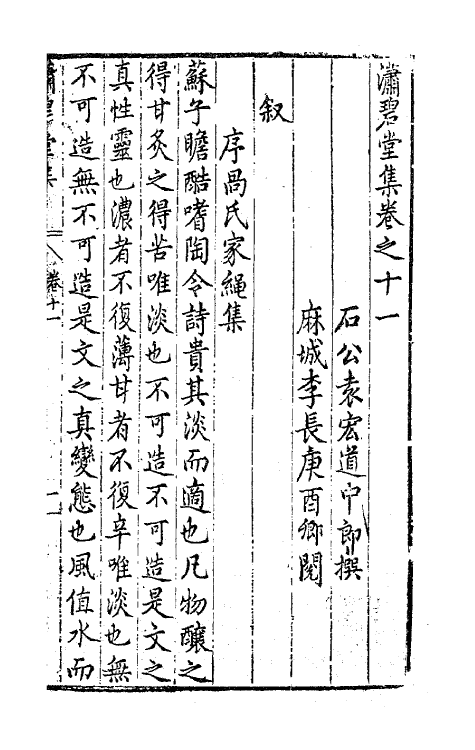 瀟碧堂集卷之十一
石公袁宏道中郎撰
麻城李長庚酉卿閱
叙
序咼氏家繩集
蘇子瞻酷嗜陶令詩貴其淡而適也凡物釀之
得甘炙之得苦唯淡也不可造不可造是文之
真性靈也濃者不復薄甘者不復辛唯淡也無
不可造無不可造是文之真變態也風值水而
瀟碧堂集 卷十一 一